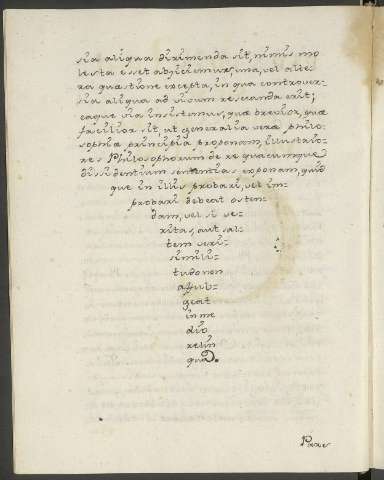 sia aliqua dirimenda sit, nimis mo
lesta esset abjiciemus; una, vel alte=
ra quæstione excepta, in qua controver=
sia aliqua ad vivum resecanda erit;
eaque via insistemus, quæ brevior, quæ
facilior sit, ut generalia vera philo=
sophiæ principia proponam, illustrio=
res Philosophorum de re quacumque
dissidentium sententias exponam, quid
que in illis probari, vel im=
probari debeat osten=
dam, vel si ve=
ritas, aut sal=
tem veri=
simili=
tudo non
afful=
geat
in me
dio
relin
quã.